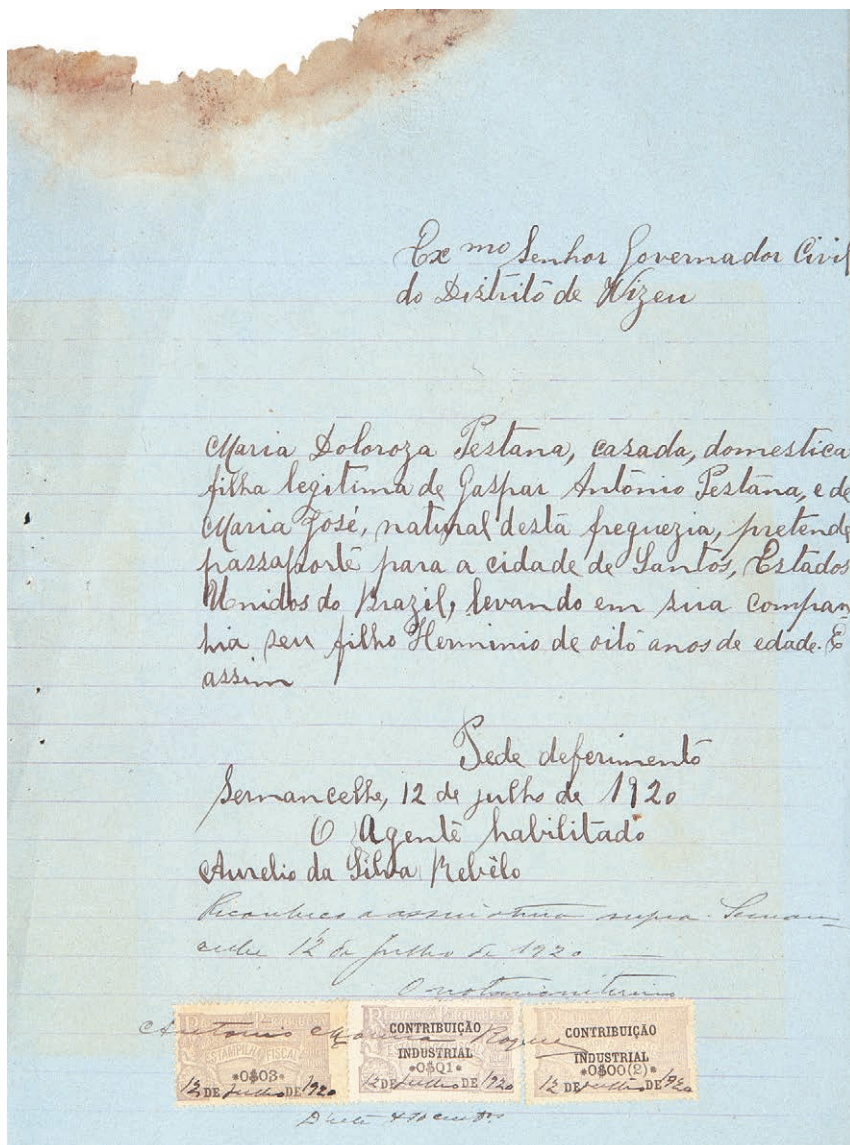 Ex mo Senhor Governador Civil
do Distrito de Vizeu
Maria Doloroza Pestana, cazada, domestica
filha legitima de Gaspar António Pestana, e de
Maria José, natural desta freguezia, pretende
passaporte para a cidade de Santos, Estados
Unidos do Brazil, levando em sua compan
hia seu filho Herminio de oito anos de edade. E
assim
Pede deferimento
Sernancelhe, 12 de julho de 1920
O Agente habilitado
Aurelio da Silva Rebêlo
Reconheco a assinatura supra. Sernan
celhe 12 de Julho de 1920
O notario interino
Antonio
REPUBLICA PORTUGUESA
ESTAMPILHA FISCAL
CONTRIBUIÇÃO
INDUSTRIAL
CONTRIBUIÇÃO
INDUSTRIAL
0$03
0$01
0$00(2)
12 DE Julho DE 1920
12 DE Julho DE 1920
12 DE Julho DE 1920